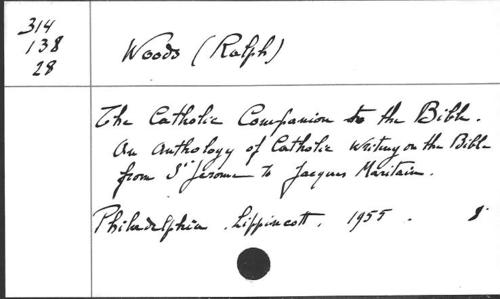 314
138
28
Woods (Ralph)
The Catholic Companion to the Bible.
An Anthology of Catholic Writing on the Bible
from St Jerome to Jacques Maritain.
Philadelphia . Lippincott . 1955 . 8°